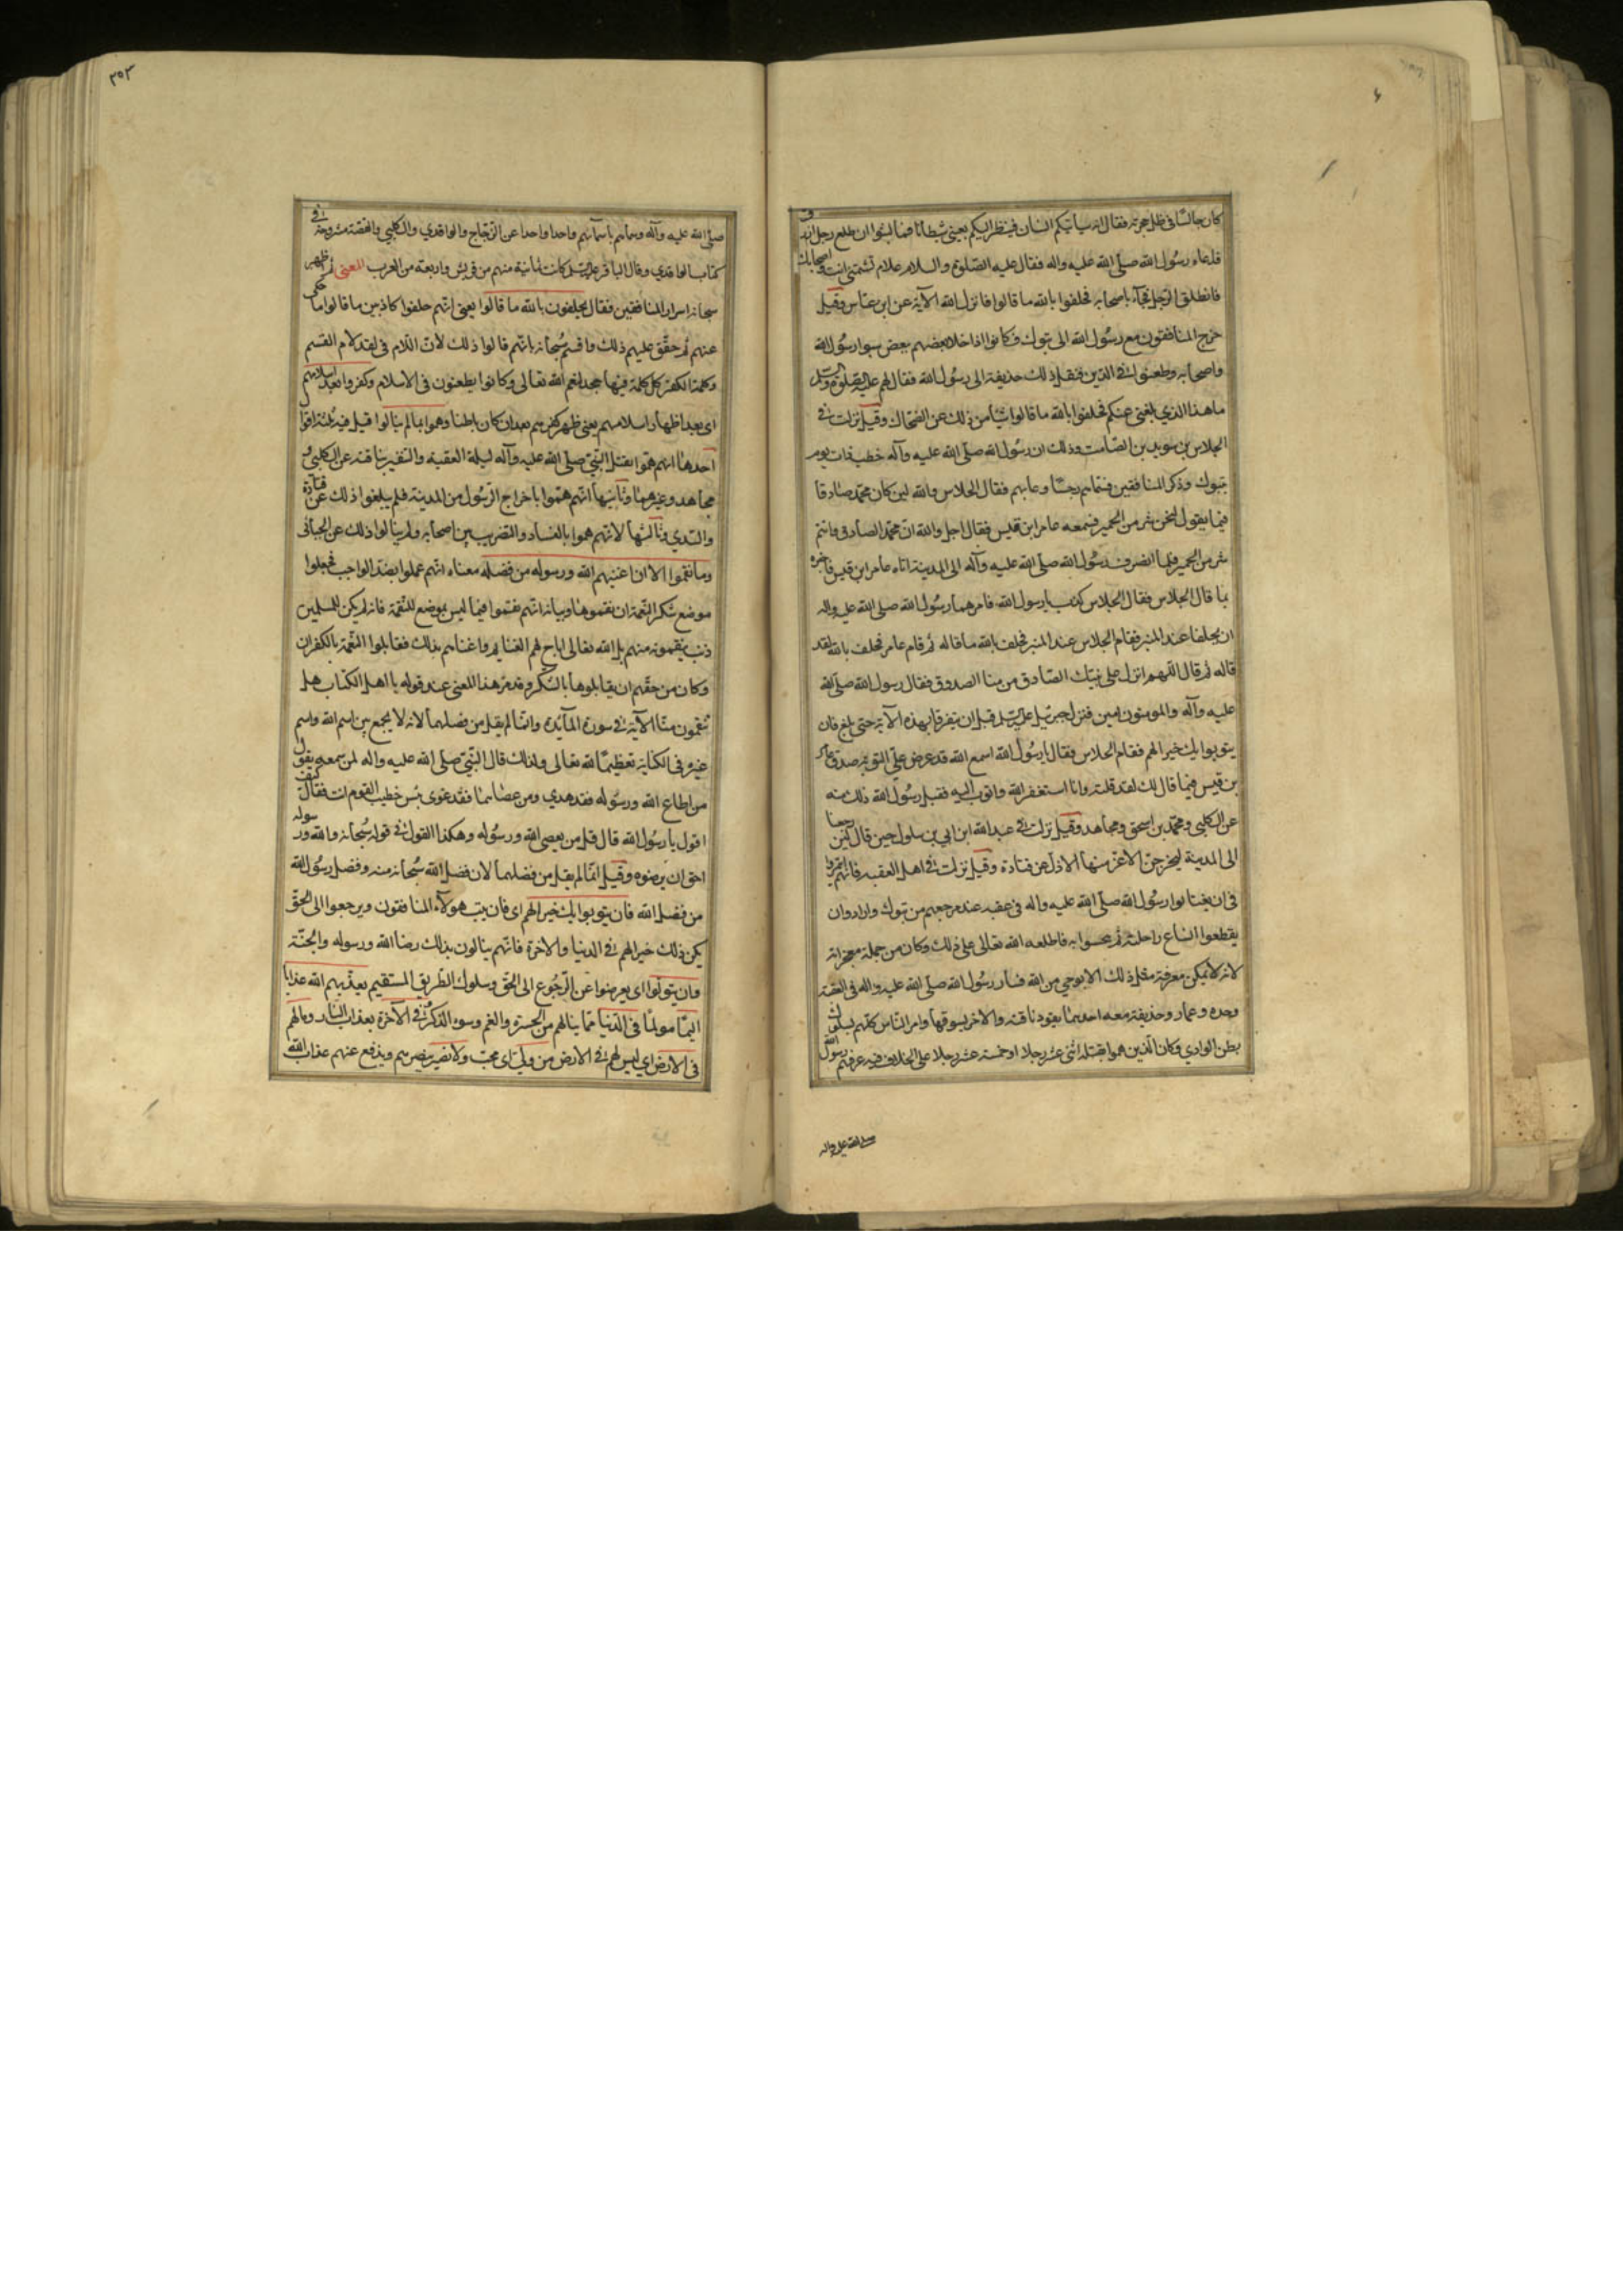 كان جالسا في ظل حجرته فقال انه سيأتيكم انسان فينظر اليكم بعيني شيطان فما لبثوا ان طلع رجل ازرق
فدعاه رسول الله صلى الله عليه واله فقال عليه الصلوة والسلام علام تشتمني انت واصحابك
فانطلق الرجل فجآء باصحابه فحلفوا بالله ما قالوا فانزل الله الآية عن ابن عباس وقيل
خرج المنافقون مع رسول الله الى تبوك وكانوا اذا خلا بعضهم ببعض سبوا رسول الله
واصحابه وطعنوا في الدين فنقل ذلك حذيفة الى رسول الله فقال لهم عليه الصلوة والسلم
ما هذا الذي بلغني عنكم فحلفوا بالله ما قالوا شيأ من ذلك عن الضحاك وقيل نزلت في
الجلاس بن سويد بن الصامت وذلك ان رسول الله صلى الله عليه وآله خطب ذات يوم
بتبوك وذكر المنافقين فسماهم رجسا وعابهم فقال الجلاس والله لين كان محمد صادقا
فيما يقول لنحن شر من الحمير فسمعه عامر ابن قيس فقال اجل والله ان محمد الصادق وانتم
شر من الحمير فلما انصرف رسول الله صلى الله عليه وآله الى المدينة اتاه عامر ابن قيس فاخبره
بما قال الجلاس فقال الجلاس كذب يا رسول الله فامرهما رسول الله صلى الله عليه واله
ان يحلفا عند المنبر فقام الجلاس عند المنبر فحلف بالله ما قاله ثم قام عامر فحلف بالله لقد
قاله ثم قال اللهم انزل على نبيك الصادق من منا الصدوق فقال رسول الله صلى الله
عليه وآله والمومنون امين فنزل جبرئيل عليه السلم قبل ان يتفرقا بهذه الآية حتى بلغ فان
يتوبوا يك خيرا لهم فقام الجلاس فقال يا رسول الله اسمع الله قد عرض علي التوبة صدق عامر
بن قيس فيما قال لك لقد قلته وانا استغفر الله واتوب اليه فقبل رسول الله ذلك منه
عن الكلبي ومحمد بن اسحق ومجاهد وقيل نزلت في عبد الله ابن ابي بن سلول حين قال لئن رجعنا
الى المدينة ليخرجن الاعز منها الاذل عن قتادة وقيل نزلت في اهل العقبة فانهم ائتمروا
في ان يغتالوا رسول الله صلى الله عليه واله في عقبة عند مرجعهم من تبوك وارادوا ان
يقطعوا انساع راحلته ثم ينخسوا به فاطلعه الله تعالى على ذلك وكان من جملة معجزاته
لانه لا يمكن معرفة مثل ذلك الا بوحي من الله فسار رسول الله صلى الله عليه واله في العقبة
وحده وعمار وحذيفة معه احدهما يقود ناقته والاخر يسوقها وامر الناس كلهم بسلوك
بطن الوادي وكان الذين هموا بقتله اثني عشر رجلا او خمسة عشر رجلا على الخلاف فيه عرفهم رسول الله
صلى الله عليه واله
٣٥٣
صلى الله عليه وآله وسماهم باسمآئهم واحدا واحدا عن الزجاج والواقدي والكلبي والقصة مشروحة في
كتاب الواقدي وقال الباقر عليه السلم كانت ثمانية منهم من قريش واربعة من العرب المعنى ثم ظهر
سبحانه اسرار المنافقين فقال يحلفون بالله ما قالوا يعني انهم حلفوا كاذبين ما قالوا ما حكى
عنهم ثم حقق عليهم ذلك واقسم سبحانه بانهم قالوا ذلك لان اللام في لقد لام القسم
وكلمة الكفر كل كلمة فيها جحد لنعم الله تعالى وكانوا يطعنون في الاسلام وكفروا بعد اسلامهم
اي بعد اظهار اسلامهم يعني ظهر كفرهم بعد ان كان باطنا وهموا بما لم ينالوا قيل فيه ثلثة اقوال
احدها انهم هموا بقتل النبي صلى الله عليه وآله ليلة العقبة والتنفير بناقته عن الكلبي و
مجاهد وغيرهما وثانيها انهم هموا باخراج الرسول من المدينة فلم يبلغوا ذلك عن قتادة
والسدي وثالثها لانهم هموا بالفساد والتضريب بين اصحابه ولم ينالوا ذلك عن الجبائي
وما نقموا الا ان اغنيهم الله ورسوله من فضله معناه انهم عملوا بضد الواجب فجعلوا
موضع شكر النعمة ان نقموها وبيانه انهم نقموا فيما ليس بموضع للنقمة فانه لم يكن للمسلمين
ذنب ينقمونه منهم بل الله تعالى اباح لهم الغنايم واغناهم بذلك فقابلوا النعمة بالكفران
وكان من حقهم ان يقابلوها بالشكر وقد مر هذا المعنى عند قوله يا اهل الكتاب هل
تنقمون منا الآية في سورة المآئدة وانما لم يقل من فضلهما لانه لا يجمع بين اسم الله واسم
غيره في الكناية تعظيما لله تعالى ولذلك قال النبي صلى الله عليه واله لمن سمعه يقول
من اطاع الله ورسوله فقد هدي ومن عصاهما فقد غوى بئس خطيب القوم انت فقال كيف
اقول يا رسول الله قال قل من يعصي الله ورسوله وهكذا القول في قوله سبحانه والله ورسوله
احق ان يرضوه وقيل انما لم يقل من فضلهما لان فضل الله سبحانه منه وفضل رسول الله
من فضل الله فان يتوبوا يك خيرا لهم اي فان يتب هولآء المنافقون ويرجعوا الى الحق
يكن ذلك خيرا لهم في الدنيا والاخرة فانهم ينالون بذلك رضا الله ورسوله والجنة
وان يتولوا اي يعرضوا عن الرجوع الى الحق وسلوك الطريق المستقيم يعذبهم الله عذابا
اليما مولما في الدنيا مما ينالهم من الحسرة والغم وسوء الذكر وفي الآخرة بعذاب النار وما لهم
في الارض اي ليس لهم في الارض من ولي اي محب ولا نصير ينصرهم ويدفع عنهم عذاب الله